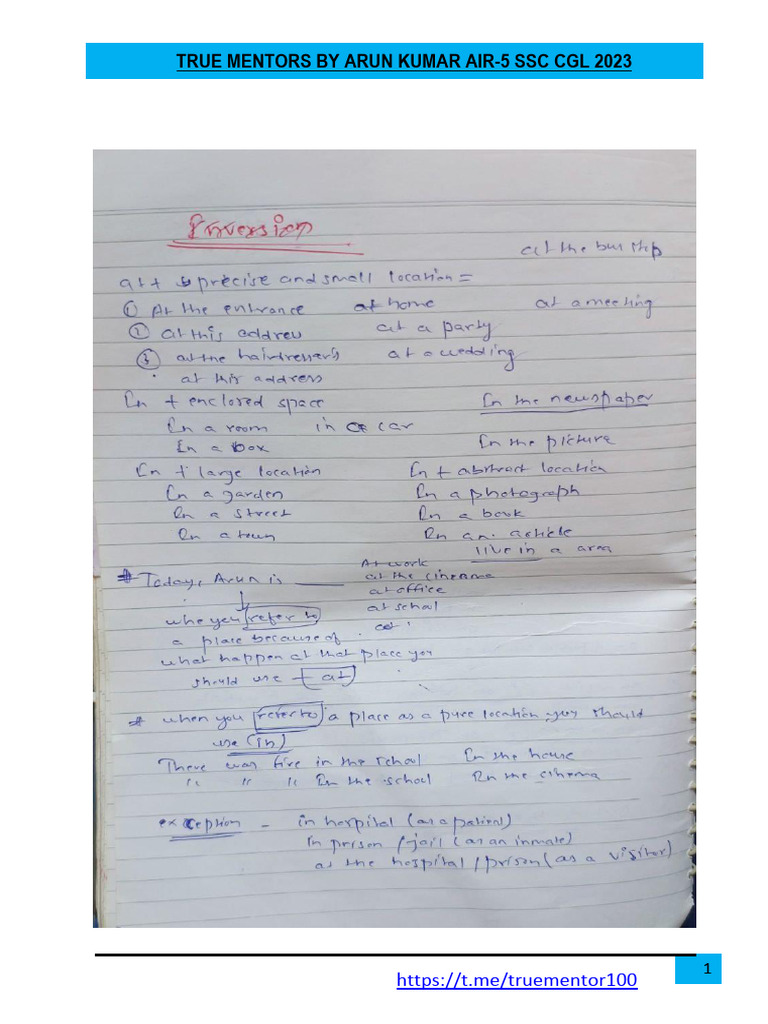 TRUE MENTORS BY ARUN KUMAR AIR-5 SSC CGL 2023
Inversion
at the bus stop
at + precise and small location =
① At the entrance at home at a meeting
② at this address at a party
③ at the hairdresser's at a wedding
at this address
In + enclosed space In the newspaper
In a room in a car
In a box In the picture
In + large location In + abstract location
In a garden In a photograph
In a street In a book
In a town In an article
live in a area
At work
# Today, Arun is ______ at the cinema
at office
at school
whe you refer to
a place because of
what happen at that place you
should use + at
* when you refer to a place as a pure location you should
use (in)
There was fire in the school In the house
" " " In the school In the cinema
exception - in hospital (as a patient)
In prison / jail (as an inmate)
at the hospital / prison (as a visitor)
1
https://t.me/truementor100